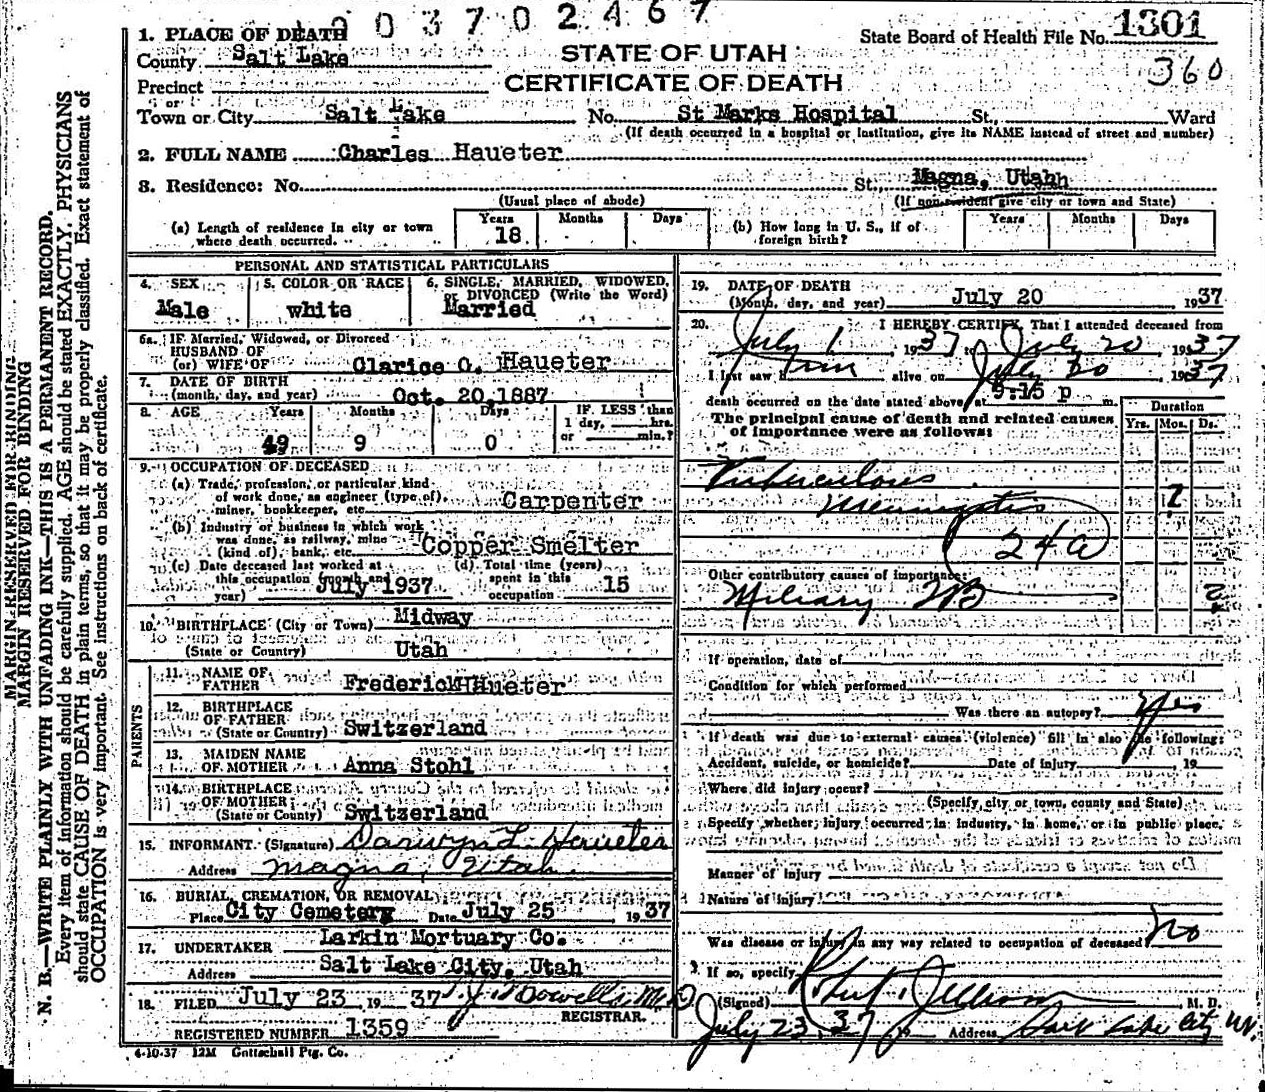 003702467
1. PLACE OF DEATH
State Board of Health File No. 1301
County Salt Lake
STATE OF UTAH
360
Precinct
CERTIFICATE OF DEATH
or
Town or City Salt Lake No. St Marks Hospital St., Ward
(If death occurred in a hospital or institution, give its NAME instead of street and number)
2. FULL NAME Charles Haueter
3. Residence: No. St., Magna, Utahh
(Usual place of abode) (If non-resident give city or town and State)
(a) Length of residence in city or town where death occurred. Years 18 Months Days
(b) How long in U. S., if of foreign birth? Years Months Days
PERSONAL AND STATISTICAL PARTICULARS
4. SEX Male
5. COLOR OR RACE white
6. SINGLE, MARRIED, WIDOWED, or DIVORCED (Write the Word) Married
6a. IF Married, Widowed, or Divorced
HUSBAND OF
(or) WIFE OF Clarice O. Haueter
7. DATE OF BIRTH
(month, day, and year) Oct. 20, 1887
8. AGE Years 49 Months 9 Days 0 IF LESS than 1 day, hrs. or min.?
9. OCCUPATION OF DECEASED
(a) Trade, profession, or particular kind
of work done, as engineer (type of),
miner, bookkeeper, etc. Carpenter
(b) Industry or business in which work
was done, as railway, mine
(kind of), bank, etc. Copper Smelter
(c) Date deceased last worked at
this occupation (month and
year) July 1937
(d) Total time (years)
spent in this
occupation 15
10. BIRTHPLACE (City or Town) Midway
(State or Country) Utah
PARENTS
11. NAME OF FATHER Frederick Haueter
12. BIRTHPLACE OF FATHER (State or Country) Switzerland
13. MAIDEN NAME OF MOTHER Anna Stohl
14. BIRTHPLACE OF MOTHER (State or Country) Switzerland
15. INFORMANT (Signature) Darwyn L. Haueter
Address Magna, Utah.
16. BURIAL, CREMATION, OR REMOVAL
Place City Cemetery Date July 25 1937
17. UNDERTAKER Larkin Mortuary Co.
Address Salt Lake City, Utah
18. FILED July 23, 19 37
REGISTRAR.
REGISTERED NUMBER 1359
4-10-37 12M Gottschall Ptg. Co.
19. DATE OF DEATH
(Month, day, and year) July 20 1937
20. I HEREBY CERTIFY, That I attended deceased from
July 1, 1937 to July 20, 1937
I last saw him alive on July 20 1937
death occurred on the date stated above, at 9:15 p m.
The principal cause of death and related causes
of importance were as follows:
Duration
Yrs. Mos. Ds.
Tuberculous
Meningitis ?
24a
Other contributory causes of importance:
Miliary TB ?
If operation, date of
Condition for which performed
Was there an autopsy? Yes
If death was due to external causes (violence) fill in also the following:
Accident, suicide, or homicide? Date of injury , 19
Where did injury occur?
(Specify city or town, county and State)
Specify whether injury occurred in industry, in home, or in public place.
Manner of injury
Nature of injury
Was disease or injury in any way related to occupation of deceased? No
If so, specify
(Signed) M. D.
July 23, 37 19 Address Salt Lake City Ut.
MARGIN RESERVED FOR BINDING
MARGIN RESERVED FOR BINDING
N. B.—WRITE PLAINLY WITH UNFADING INK—THIS IS A PERMANENT RECORD.
Every item of information should be carefully supplied. AGE should be stated EXACTLY. PHYSICIANS
should state CAUSE OF DEATH in plain terms, so that it may be properly classified. Exact statement of
OCCUPATION is very important. See instructions on back of certificate.